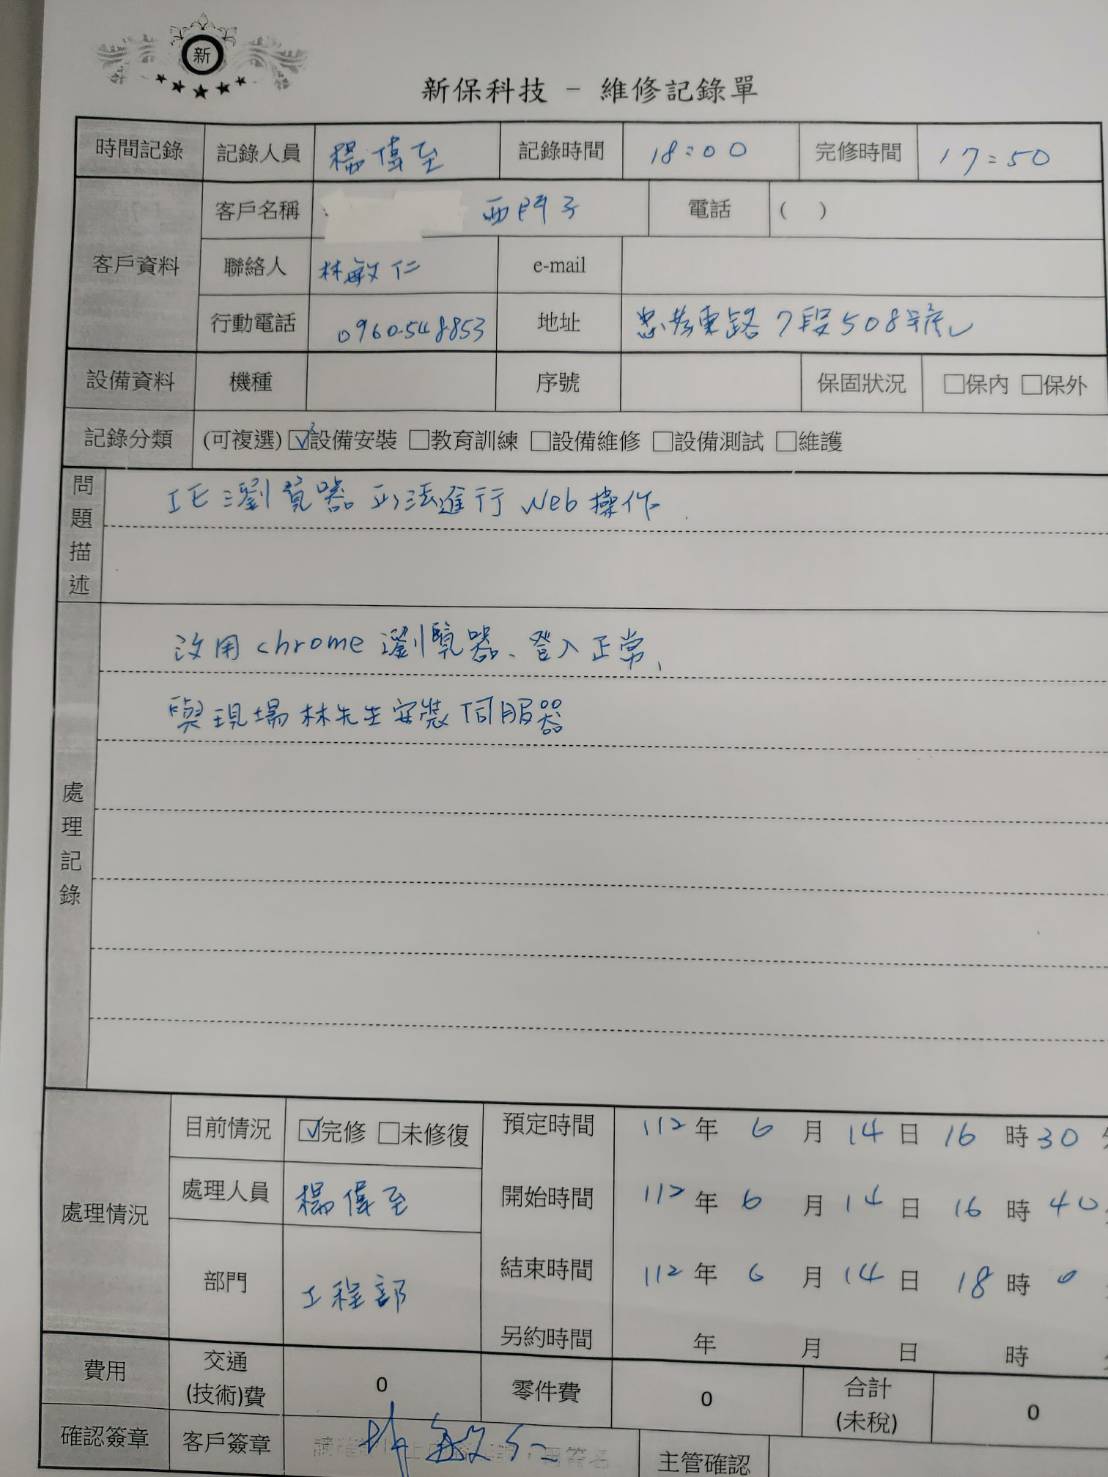 新
新保科技 - 維修記錄單
時間記錄 記錄人員 楊偉至 記錄時間 18:00 完修時間 17:50
客戶資料 客戶名稱 西門子 電話 ( )
聯絡人 林敏仁 e-mail
行動電話 0960-548853 地址 忠孝東路7段508號
設備資料 機種 序號 保固狀況 □保內 □保外
記錄分類 (可複選) ☑設備安裝 □教育訓練 □設備維修 □設備測試 □維護
問題描述 IE瀏覽器 法進行 Web 操作.
處理記錄 改用 chrome 瀏覽器、登入正常,
與現場林先生安裝伺服器
處理情況 目前情況 ☑完修 □未修復 預定時間 112年 6 月 14 日 16 時 30
處理人員 楊偉至 開始時間 112年 6 月 14 日 16 時 40
部門 工程部 結束時間 112年 6 月 14 日 18 時 0
另約時間 年 月 日 時
費用 交通(技術)費 0 零件費 0 合計(未稅) 0
確認簽章 客戶簽章 林敏仁 主管確認